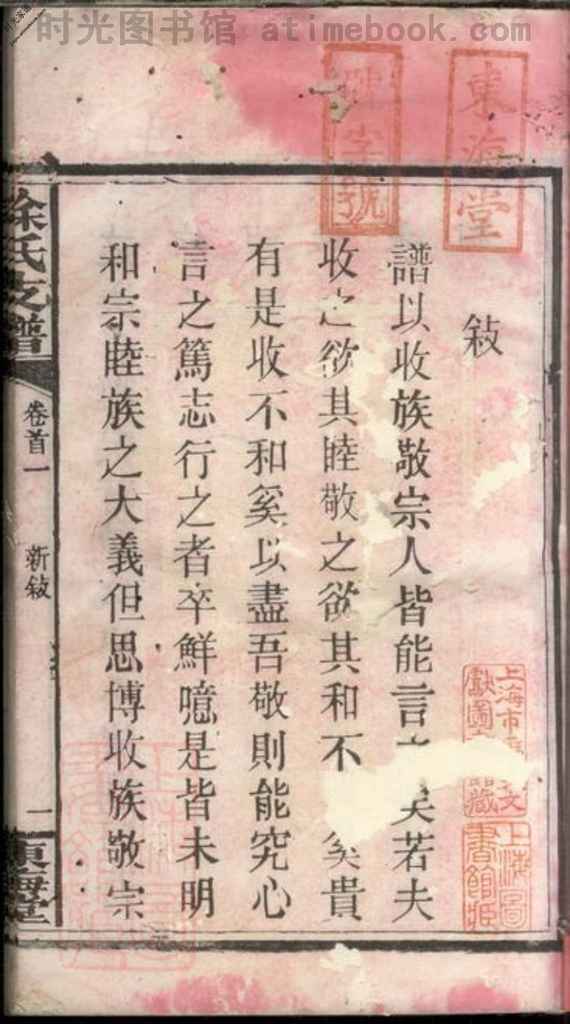 时光图书馆 atimebook.com
東海堂
字號
敍
譜以收族敬宗人皆能言矣若夫
收之欲其睦敬之欲其和不奚貴
有是收不和奚以盡吾敬則能究心
言之篤志行之者卒鮮噫是皆未明
和宗睦族之大義但思博收族敬宗
徐氏支譜
卷首一
新敍
一
東海堂
上海市文
獻圖藏
上海圖
書館